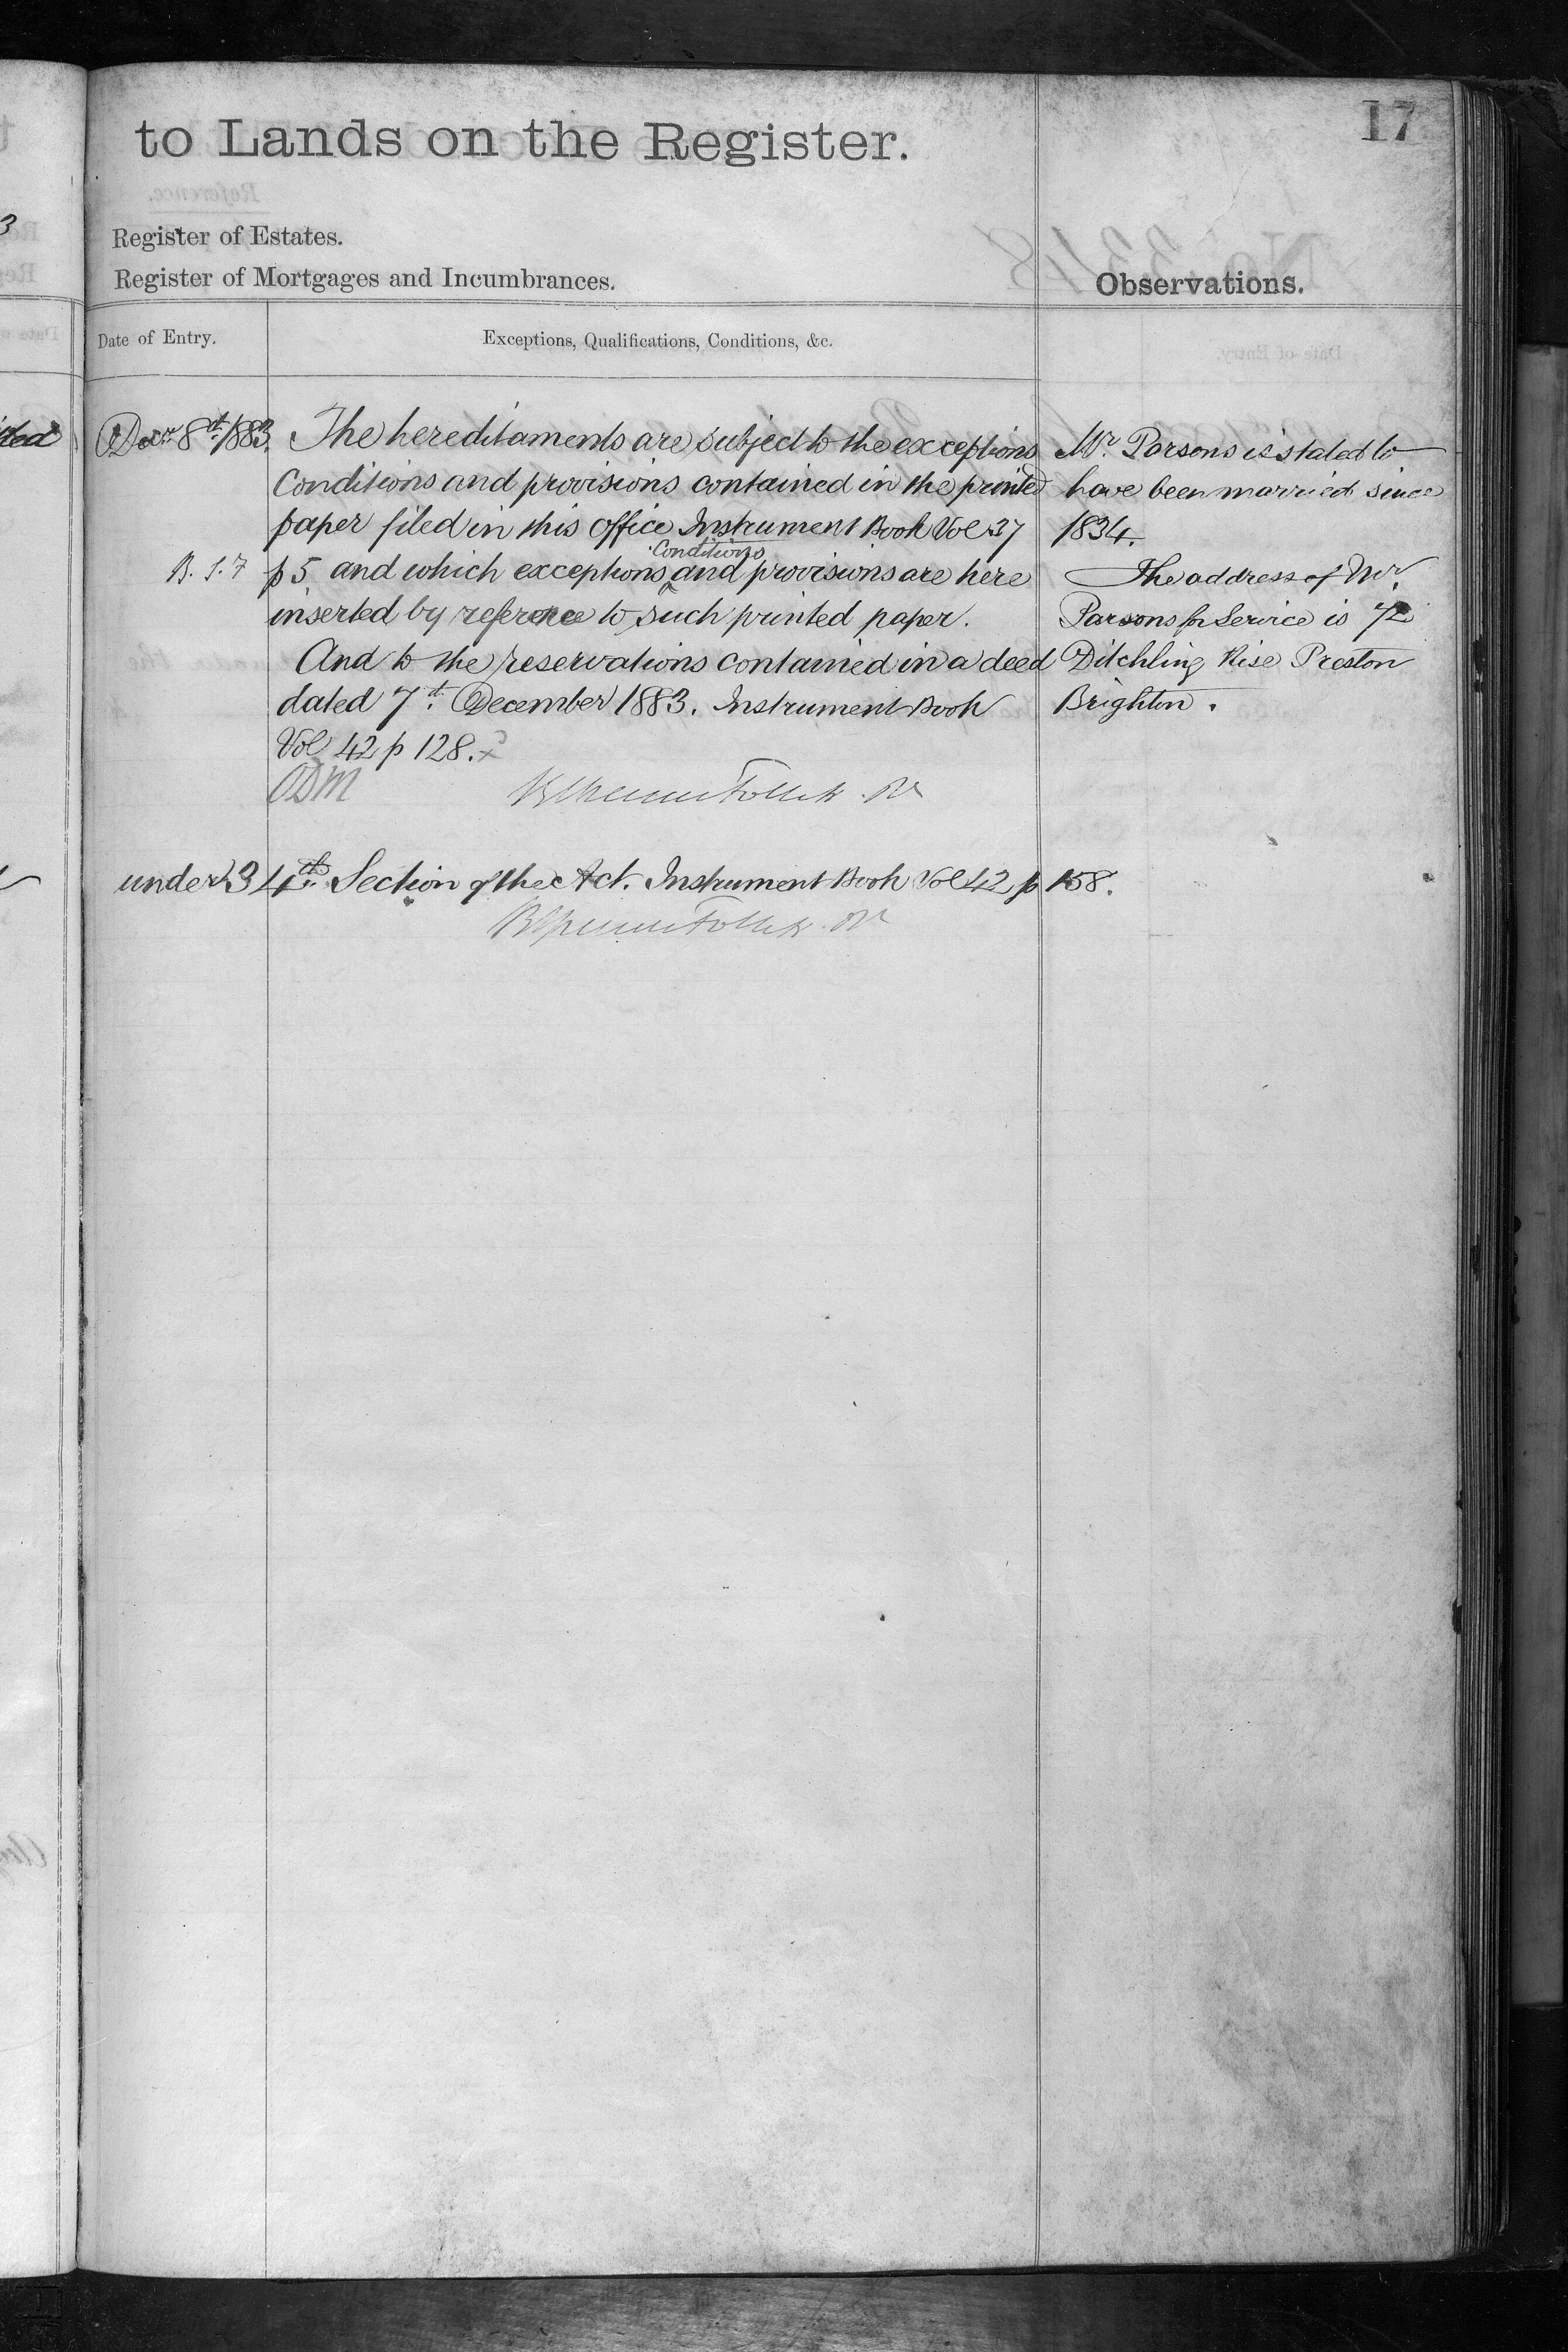 17
to Lands on the Register.
Register of Estates.
Register of Mortgages and Incumbrances.
Observations.
Date of Entry.
Exceptions, Qualifications, Conditions, &c.
Decr 8th 1883. The hereditaments are subject to the exceptions
Conditions and provisions contained in the printed
paper filed in this office Instrument Book Vol 37
Conditions
p 5 and which exceptions and provisions are here
inserted by reference to such printed paper.
And to the reservations contained in a deed
dated 7th December 1883. Instrument Book
Vol 42 p 128.
Mr. Parsons is stated to
have been married since
1834.
The address of Mr.
Parsons for Service is 72
Ditchling Rise Preston
Brighton.
under 34th Section of the Act. Instrument Book Vol 42 p 158.